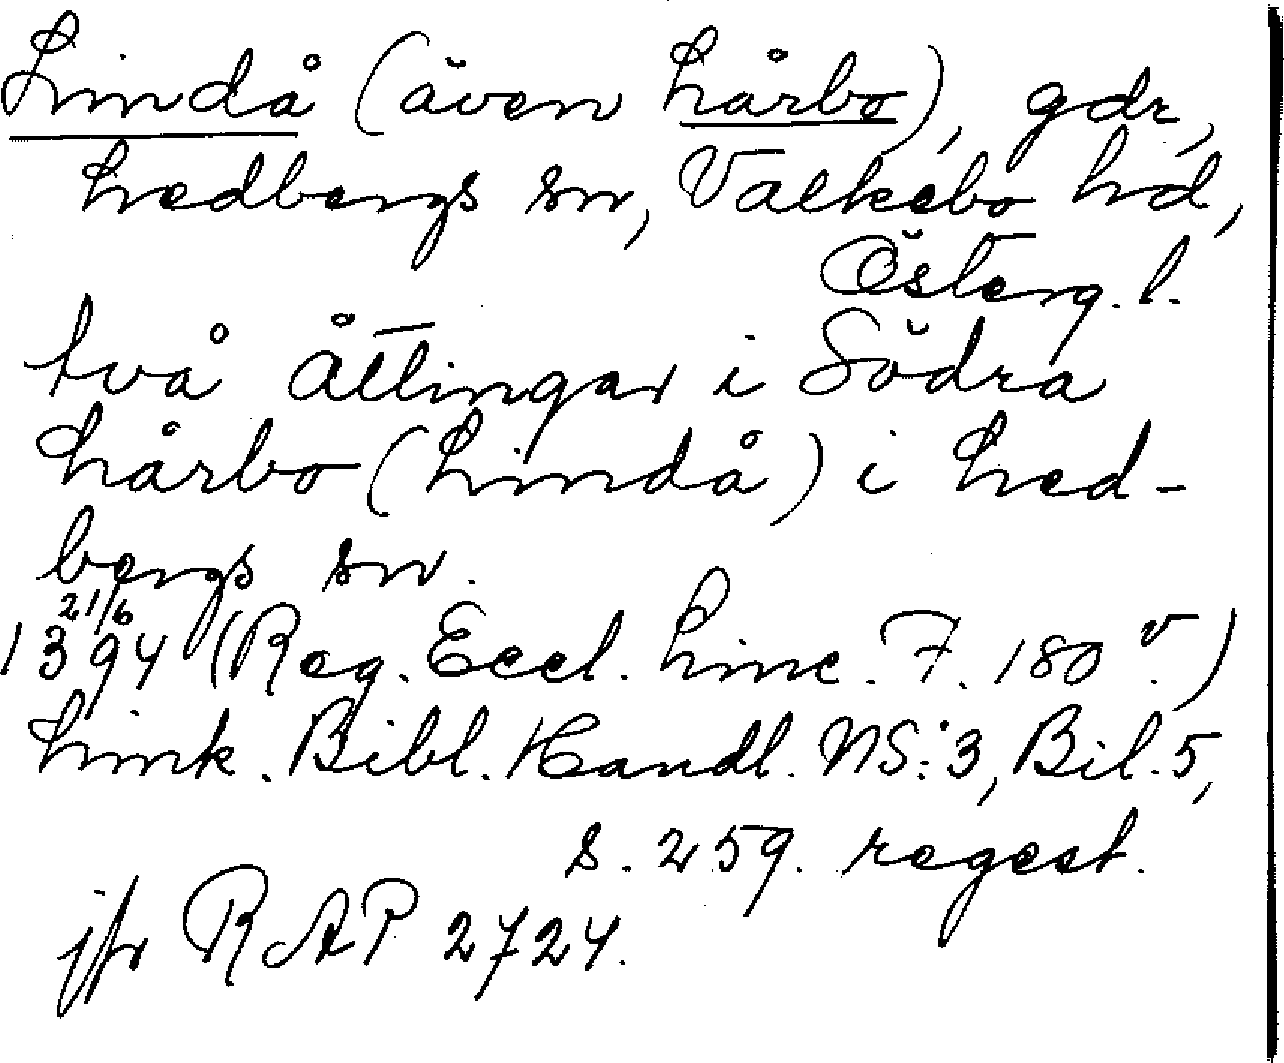 Lindå (även Lårbo), gdr,
Ledbergs sn, Valkebo hd,
Österg. l.
två åttingar i Södra
Lårbo (Lindå) i Led-
bergs sn.
21/6
1394 (Reg. Eccl. Linc. F. 180 v.)
Link. Bibl. Handl. NS:3, Bil. 5,
s. 259. regest.
jfr RAP 2724.